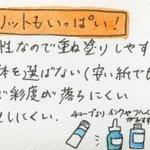 リットもいっぱい!
性なので重ね塗りしやす
体を選ばない(安い紙で
ご彩度が落ちにくい
としにくい.
チューブより インクやフルイ